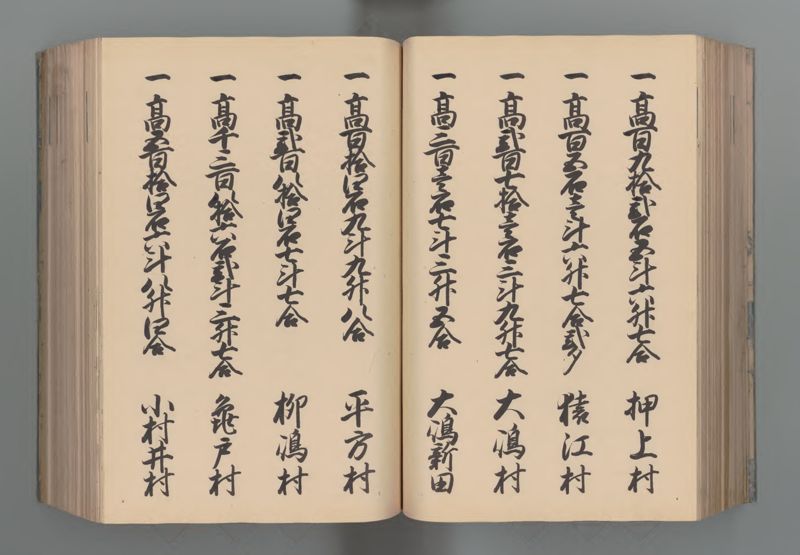 一 高百九拾弐石五斗六升七合 押上村
一 高百五石壱斗六升七合弐夕 猿江村
一 高弐百七拾壱石三斗九升七合 大嶋村
一 高三百壱石七斗三升五合 大嶋新田
一 高百拾四石九斗九升八合 平方村
一 高弐百八拾四石七斗七合 柳嶋村
一 高千三百八拾六石弐斗三升七合 亀戸村
一 高五百拾四石六斗八升四合 小村井村